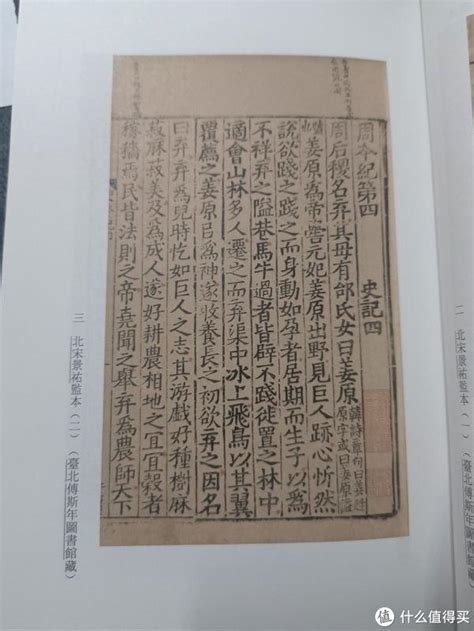 二 北宋景祐監本(一)(臺北傅斯年圖書館藏)
周本紀第四 史記四
周后稷名弃其母有邰氏女曰姜原
韓詩章句曰姜姓
原字或曰姜原謚
姜原為帝嚳元妃姜原出野見巨人跡心忻然
說欲踐之踐之而身動如孕者居期而生子以為
不祥弃之隘巷馬牛過者皆辟不踐徙置之林中
適會山林多人遷之而弃渠中冰上飛鳥以其翼
覆薦之姜原以為神遂收養長之初欲弃之因名
曰弃弃為兒時忔如巨人之志其游戲好種樹麻
菽麻菽美及為成人遂好耕農相地之宜宜穀者
稼穡焉民皆法則之帝堯聞之舉弃為農師天下
三 北宋景祐監本(二)(臺北傅斯年圖書館藏)
值 什么值得买